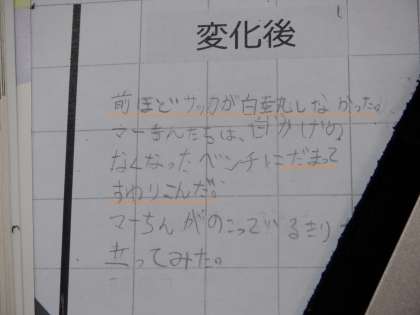 変化後
前ほどサッカが白執しなかった。
マーちんたちは、かげの
なくなったベンチにだまって
すわりこんだ。
マーちんがのこっているきり
立ってみた。